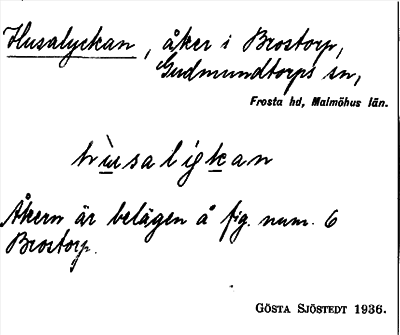 Husalyckan, åker i Brostorp,
Gudmundtorps sn,
Frosta hd, Malmöhus län.
hùsaligkan
Åkern är belägen å fig. num. 6
Brostorp.
GÖSTA SJÖSTEDT 1936.